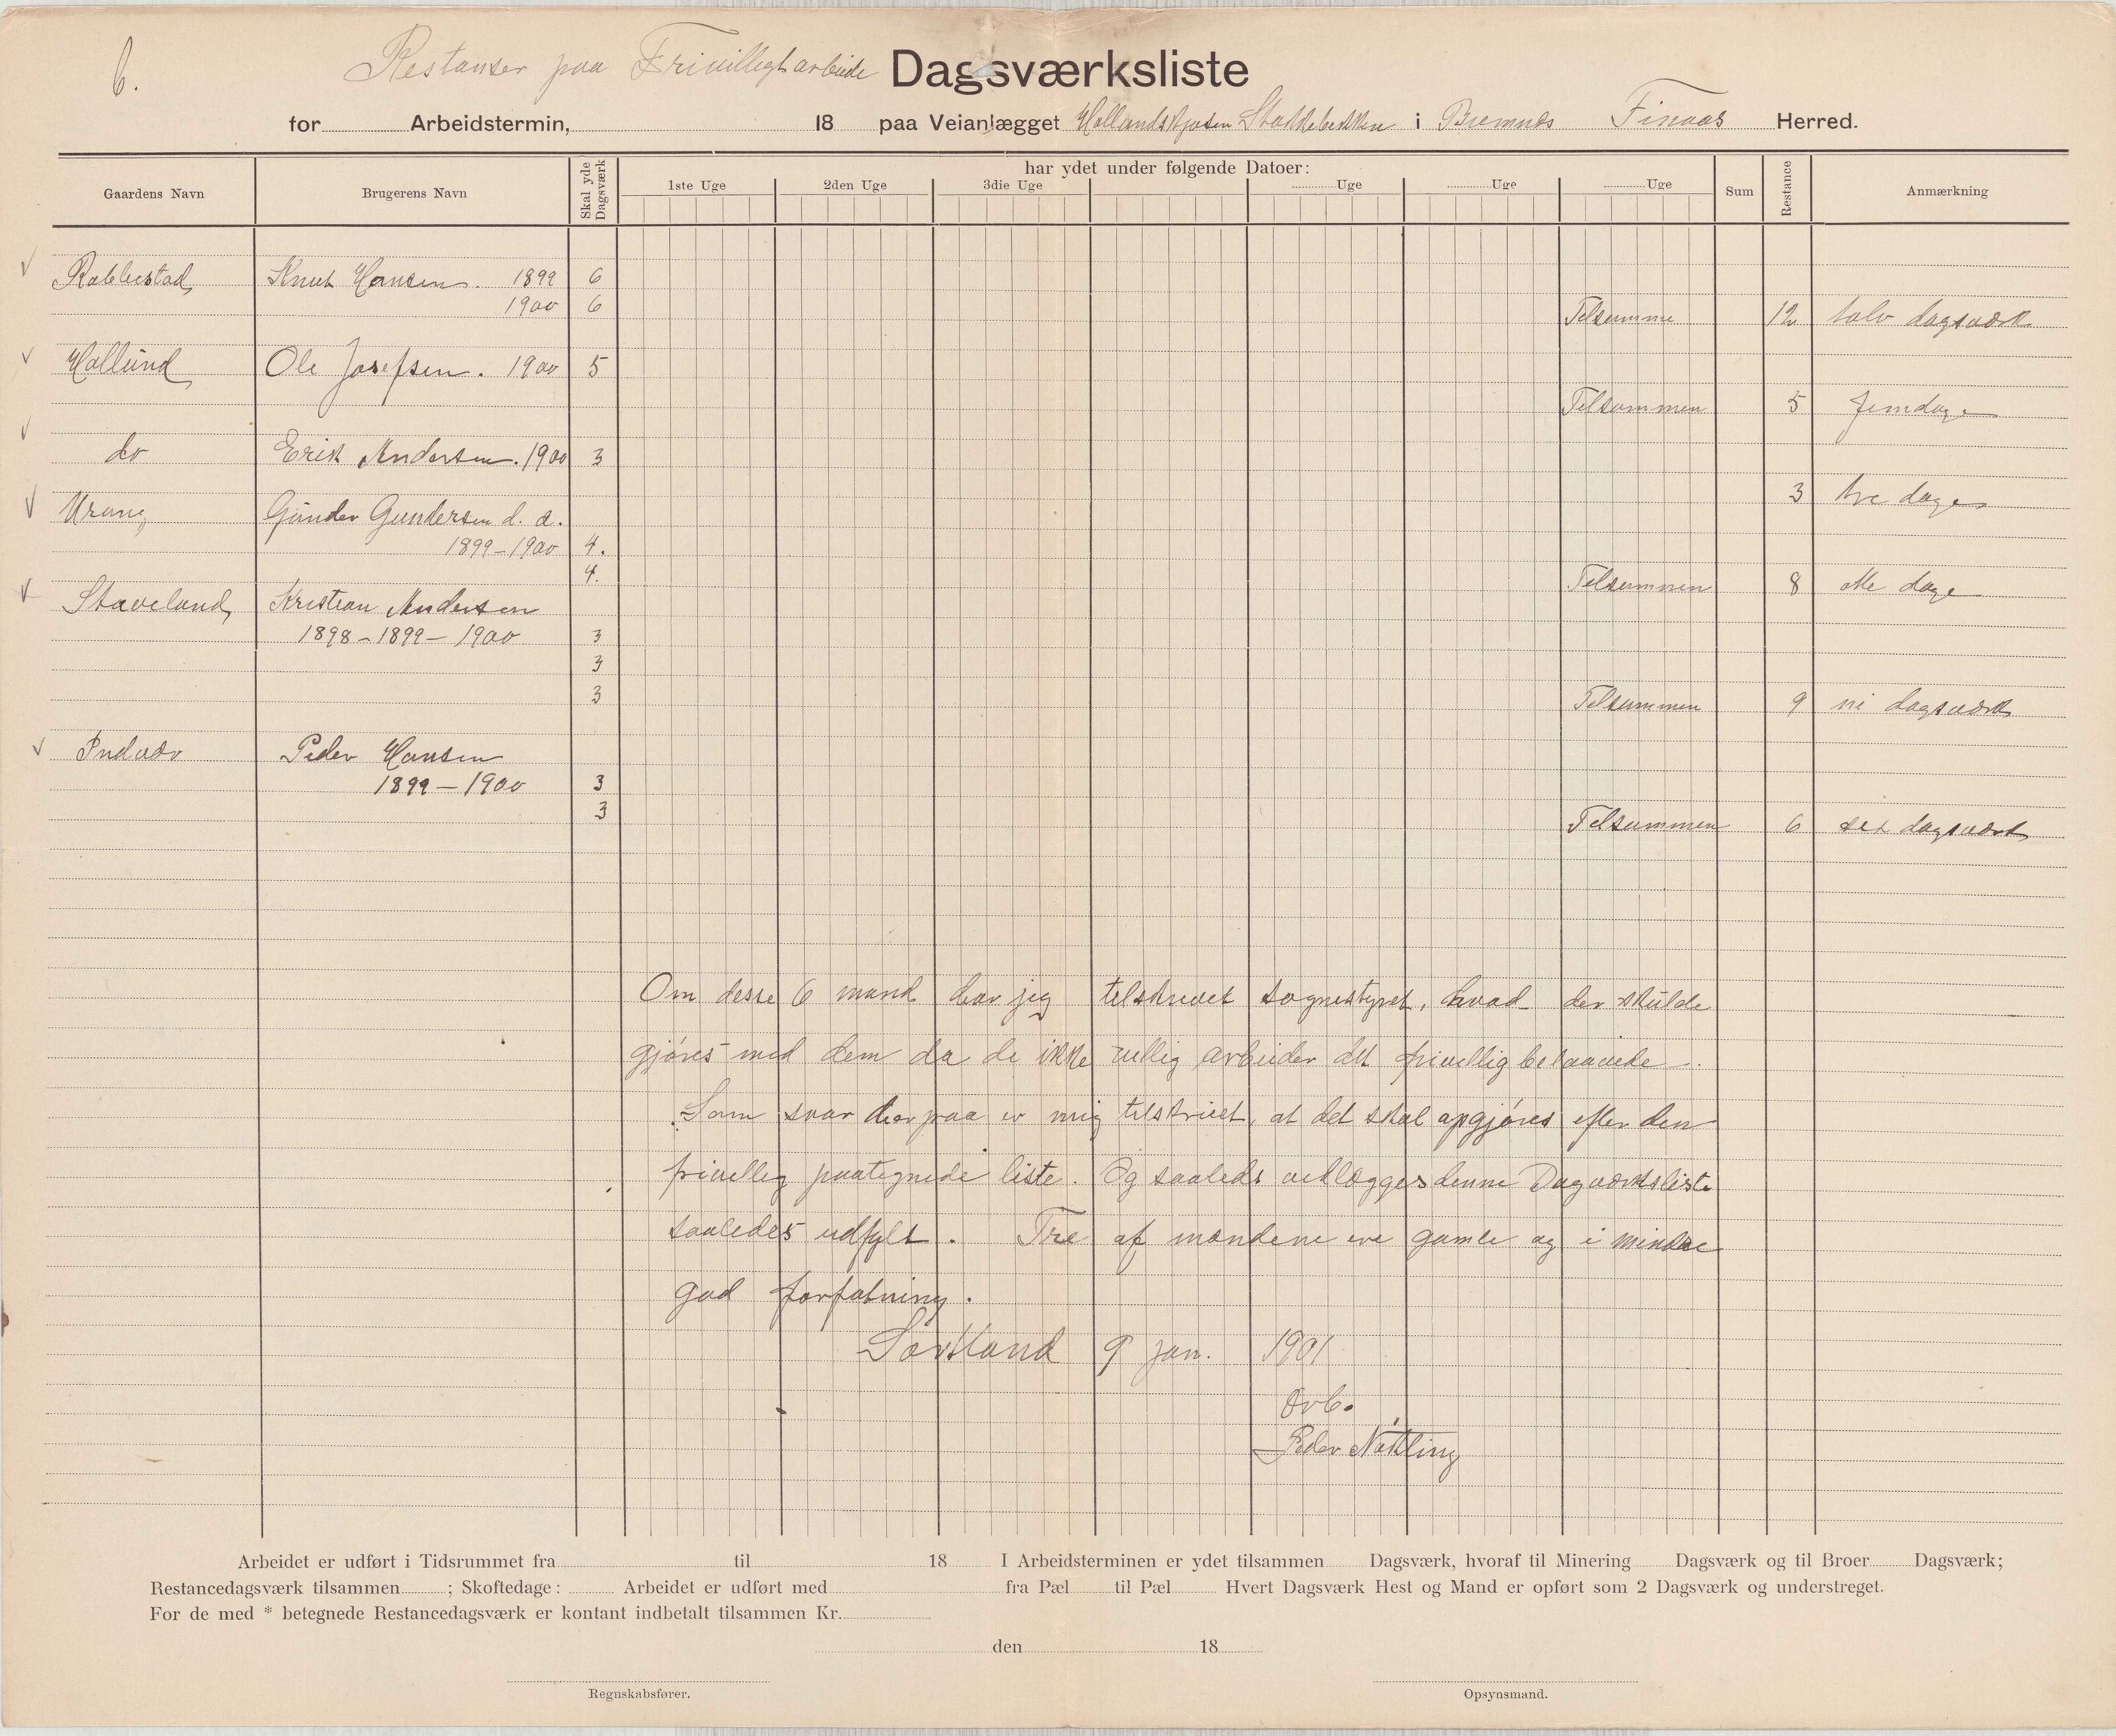 6.
Restanser paa Frivilligt arbeide Dagsværksliste
for Arbeidstermin, 18 paa Veianlægget i Bremnæs Finaas Herred.
Gaardens Navn Brugerens Navn Skal yde Dagsværk har ydet under følgende Datoer: Sum Restance Anmærkning
1ste Uge 2den Uge 3die Uge Uge Uge Uge
Rabbestad Knut Hansen. 1899 6
1900 6 Telsamme 12 tolv dagsværk
Hallund Ole Josefsen. 1900 5
Telsammen 5 femdage
do Erik Andersen. 1900 3
3 tre dage
Urang Gunder Gundersen d. æ.
1899-1900 4.
4. Telsammen 8 otte dage
Staveland Kristian Andersen
1898-1899-1900 3
3
3 Telsammen 9 ni dagsværk
Indvær Peder Hansen
1899-1900 3
3 Telsammen 6 sex dagsværk
Om desse 6 mand har jeg telskrevet sognestyret, hvad der skulde
gjøres med dem da de ikke vellig arbeider det frivellig
Som svar derpaa er mig telskrivet, at det skal opgjøres efter den
frivellig paategnede liste. Og saaleds vedlægges denne Dagværksliste
saaledes udfylt. Tre af mændene ere gamle og i mindre
god forfatning.
Sørtland 9 jan. 1901
Ærb.
Peder Nøkling
Arbeidet er udført i Tidsrummet fra til 18 I Arbeidsterminen er ydet tilsammen Dagsværk, hvoraf til Minering Dagsværk og til Broer Dagsværk;
Restancedagsværk tilsammen ; Skoftedage: Arbeidet er udført med fra Pæl til Pæl Hvert Dagsværk Hest og Mand er opført som 2 Dagsværk og understreget.
For de med * betegnede Restancedagsværk er kontant indbetalt tilsammen Kr.
den 18
Regnskabsfører. Opsynsmand.